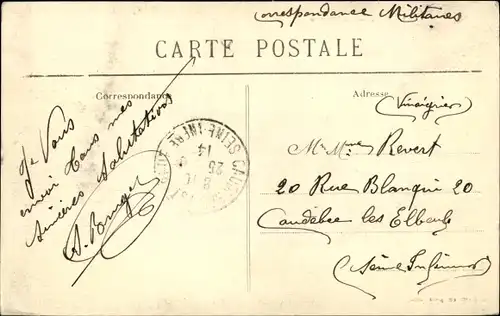 Correspondance Militaires
CARTE POSTALE
Correspondance
Adresse
(Vinaigrier)
Mr Mme Revert
20 Rue Blanqui 20
Caudebec les Elbeufs
(Seine Inférieure)
Je Vous
envoi tous mes
sincères Salutations
SEINE-INFRE
14
25